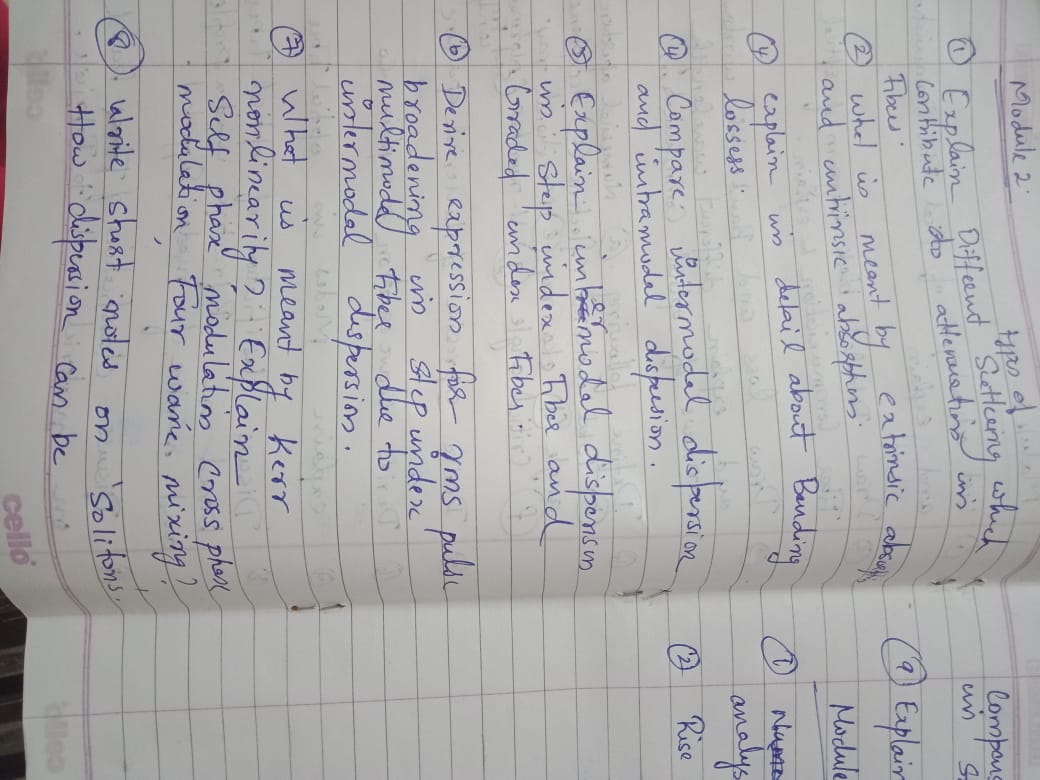 Module 2.
types of
① Explain Differnt Scattering which
contribute to attenuation in
Fiber.
② what is meant by extrinsic absorption
and intrinsic absorption.
④ explain in detail about Bending
lossess.
④ Compare intermodal dispersion
and intramodal dispersion.
⑤ Explain intermodal dispersion
in Step index Fiber and
Graded index Fiber.
⑥ Derive expression for rms pulse
broadening in step index
multimode Fiber due to
intermodal dispersion.
⑦ What is meant by Kerr
nonlinearity? Explain
Self phase modulation Cross phase
modulation, Four wave mixing?
⑧ Write short notes on Solitons.
How dispersion can be
cello
Compens
in S
⑨ Explain
Module
①
analys
② Rise